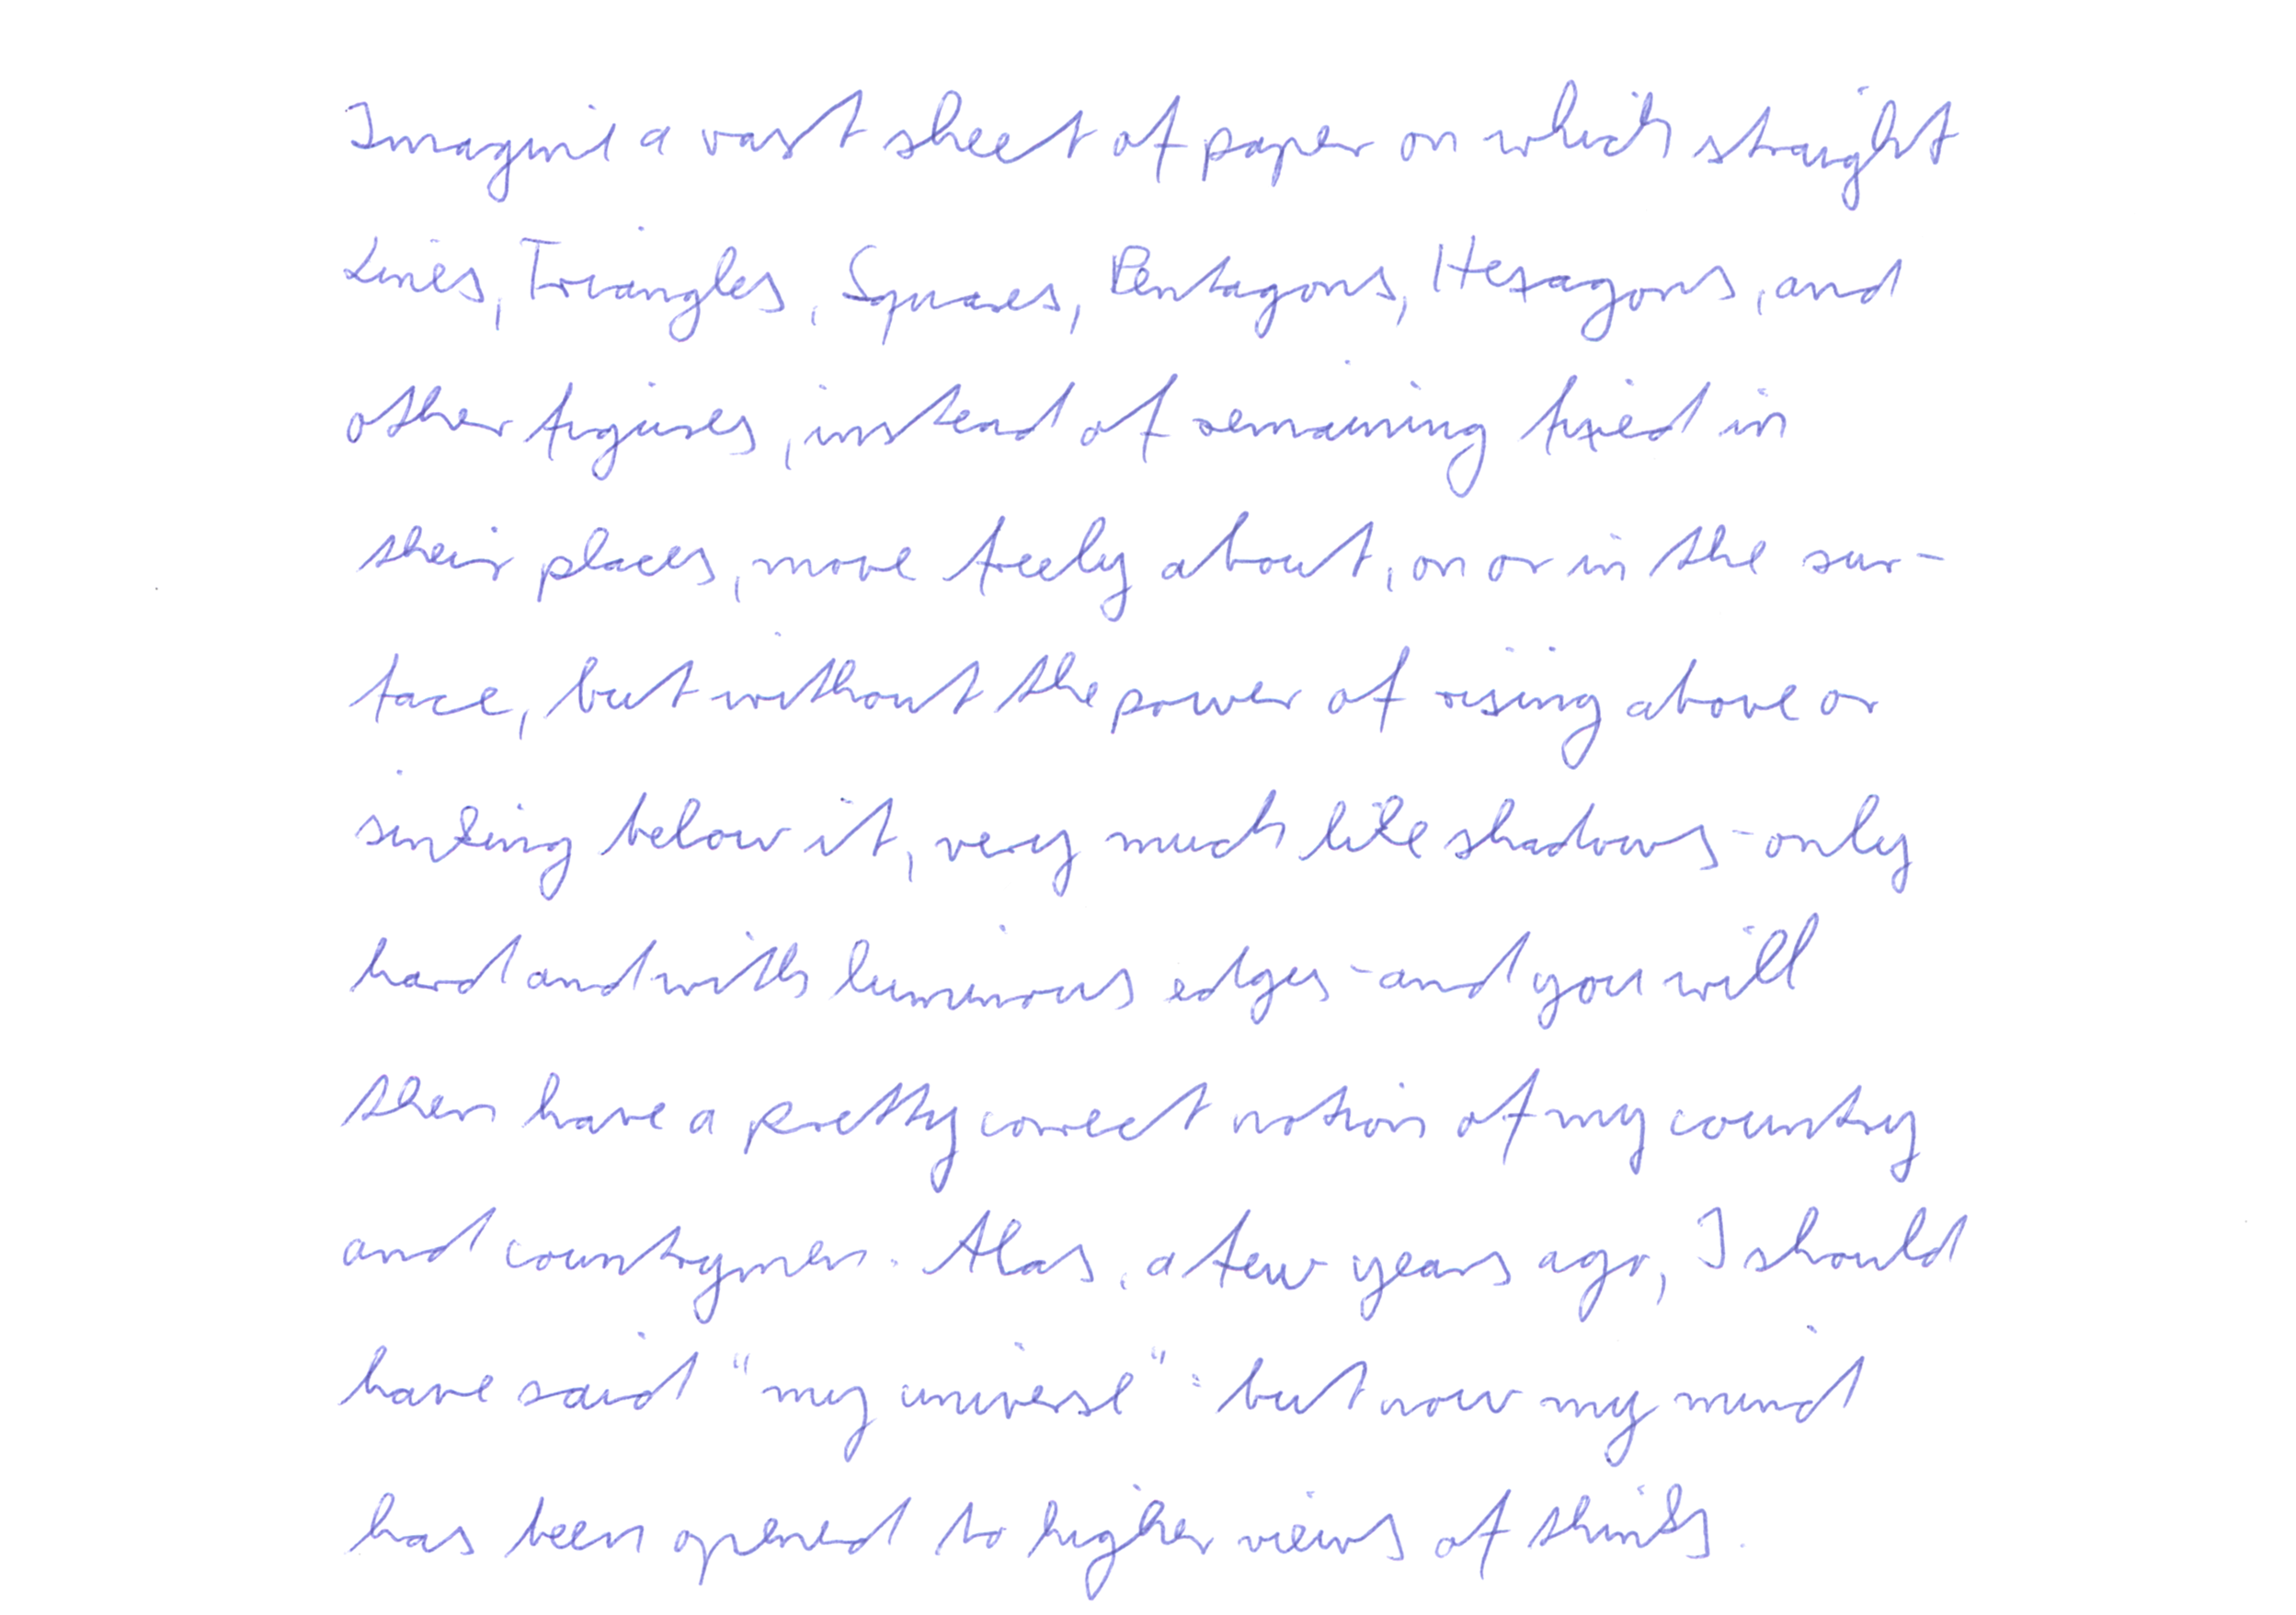 Imagine a vast sheet of paper on which straight
Lines, Triangles, Squares, Pentagons, Hexagons, and
other figures, instead of remaining fixed in
their places, move freely about, on or in the sur-
face, but without the power of rising above or
sinking below it, very much like shadows - only
hard and with luminous edges - and you will
then have a pretty correct notion of my country
and countrymen. Alas, a few years ago, I should
have said "my universe": but now my mind
has been opened to higher views of